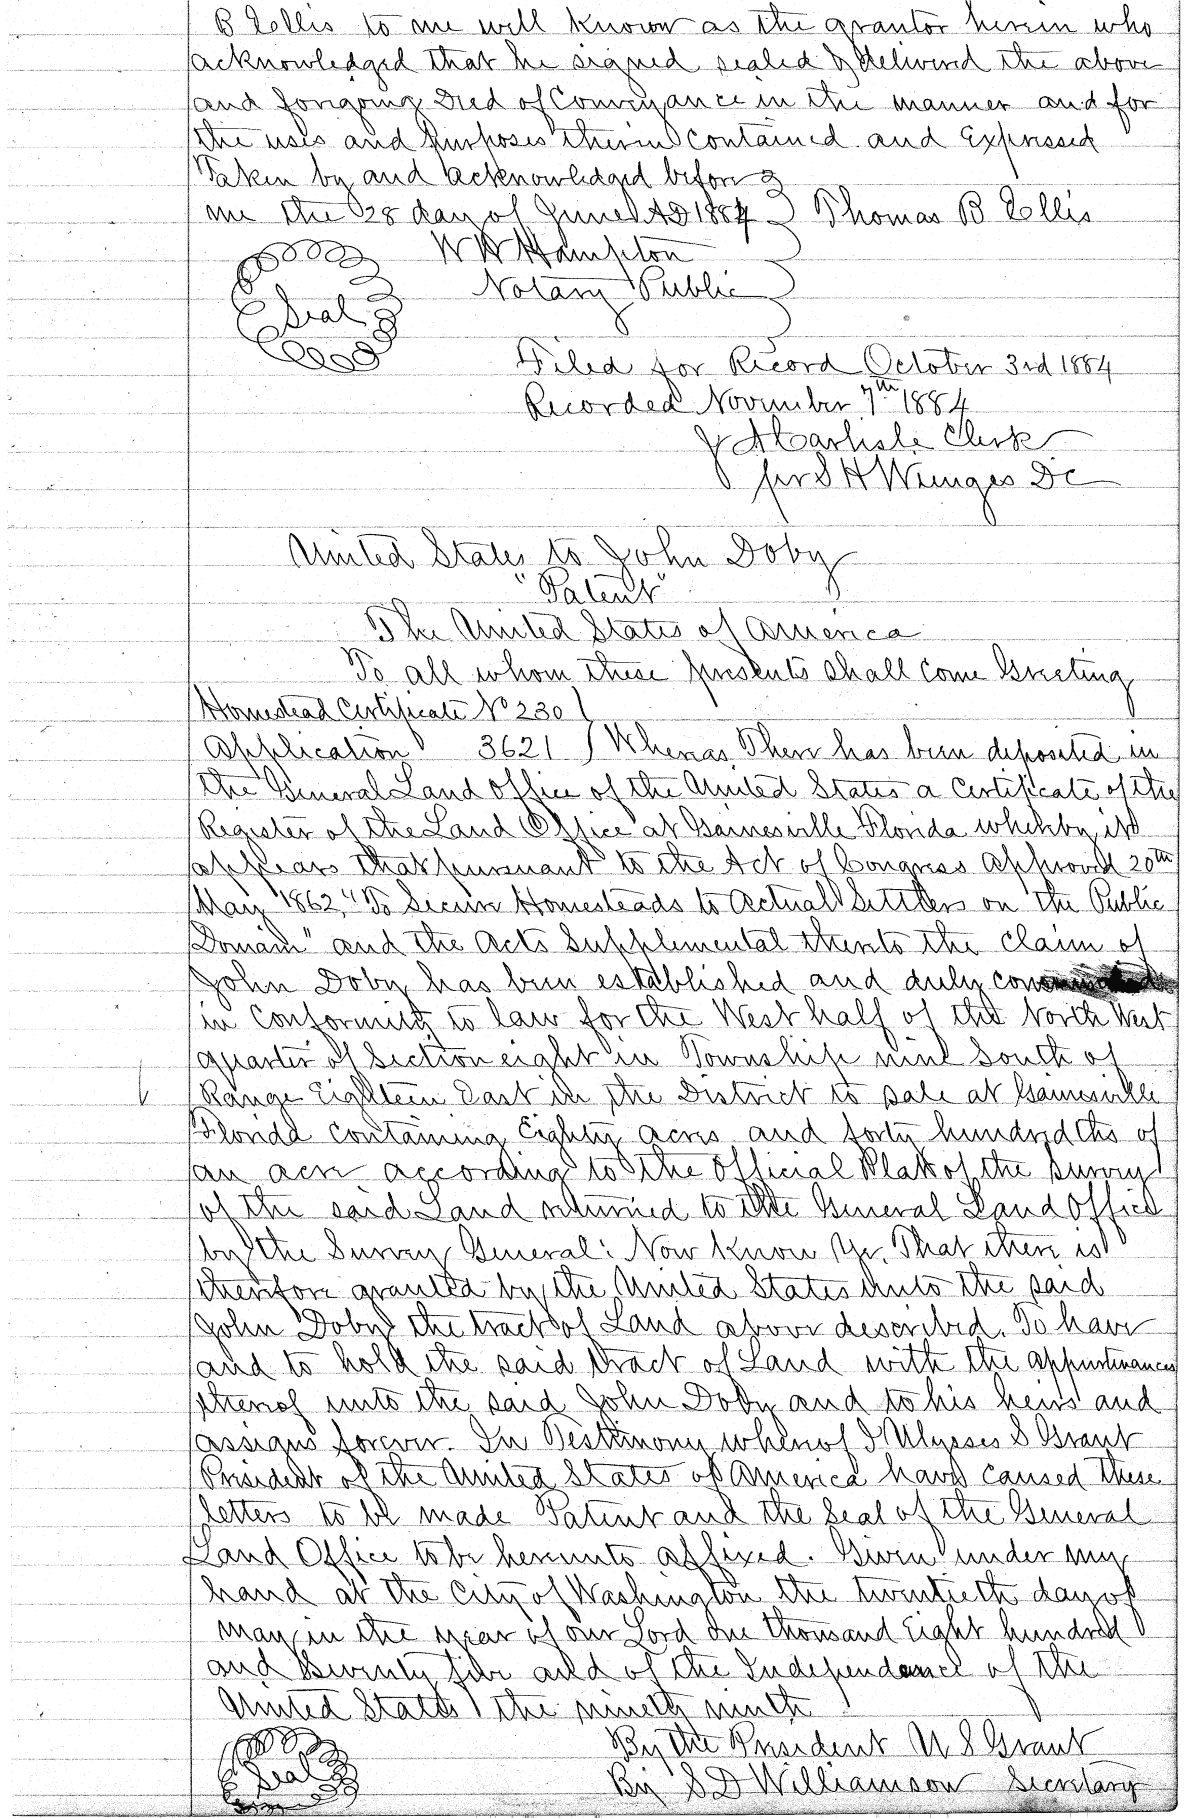 B Ellis to me well known as the grantor herein who
acknowledged that he signed sealed & delivered the above
and foregoing Deed of Conveyance in the manner and for
the uses and purposes therein contained and Expressed
Taken by and acknowledged before
me the 28 day of June AD 1884 Thomas B Ellis
W W Hampton
Notary Public
Seal
Filed for Record October 3rd 1884
Recorded November 7th 1884
J A Carlisle Clerk
per S H Wienges DC
United States to John Doby
"Patent"
The United States of America
To all whom these presents shall come Greeting
Homestead Certificate No 230
Application 3621 Whereas There has been deposited in
the General Land Office of the United States a Certificate of the
Register of the Land Office at Gainesville Florida whereby it
appears that pursuant to the Act of Congress approved 20th
May 1862, "To Secure Homesteads to Actual Settlers on the Public
Domain" and the Acts Supplemental thereto the Claim of
John Doby has been established and duly
in Conformity to law for the West half of the North West
quarter of Section eight in Township nine South of
Range Eighteen East in the District to sale at Gainesville
Florida containing Eighty acres and forty hundredths of
an acre according to the Official Platt of the survey
of the said Land returned to the General Land Office
by the Survey General: Now Know Ye, That there is
therefore granted by the United States unto the said
John Doby the tract of Land above described. To have
and to hold the said tract of Land with the appurtenances
thereof unto the said John Doby and to his heirs and
assigns forever. In Testimony whereof I Ulysses S Grant
President of the United States of America have caused these
letters to be made Patent and the Seal of the General
Land Office to be hereunto affixed. Given under my
hand at the City of Washington the twentieth day of
May in the year of our Lord One thousand Eight hundred
and Seventy five and of the Independence of the
United States the ninety ninth
By the President U S Grant
Seal By S D Williamson Secretary